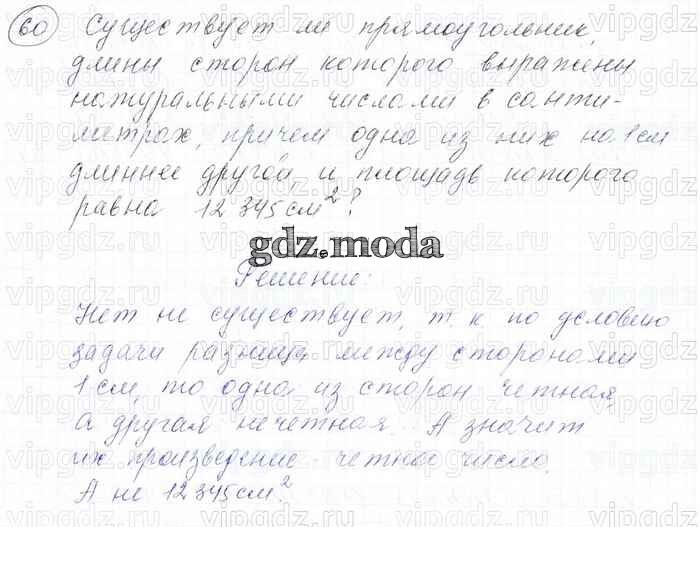 60 Существует ли прямоугольник,
длины сторон которого выражены
натуральными числами в санти-
метрах, причем одна из них на 1 см
длиннее другой, и площадь которого
равна 12 345 см²?
gdz.moda
Решение:
Нет не существует, т. к. по условию
задачи разница между сторонами
1 см, то одна из сторон четная,
а другая нечетная. А значит
их произведение - четное число.
А не 12 345 см².